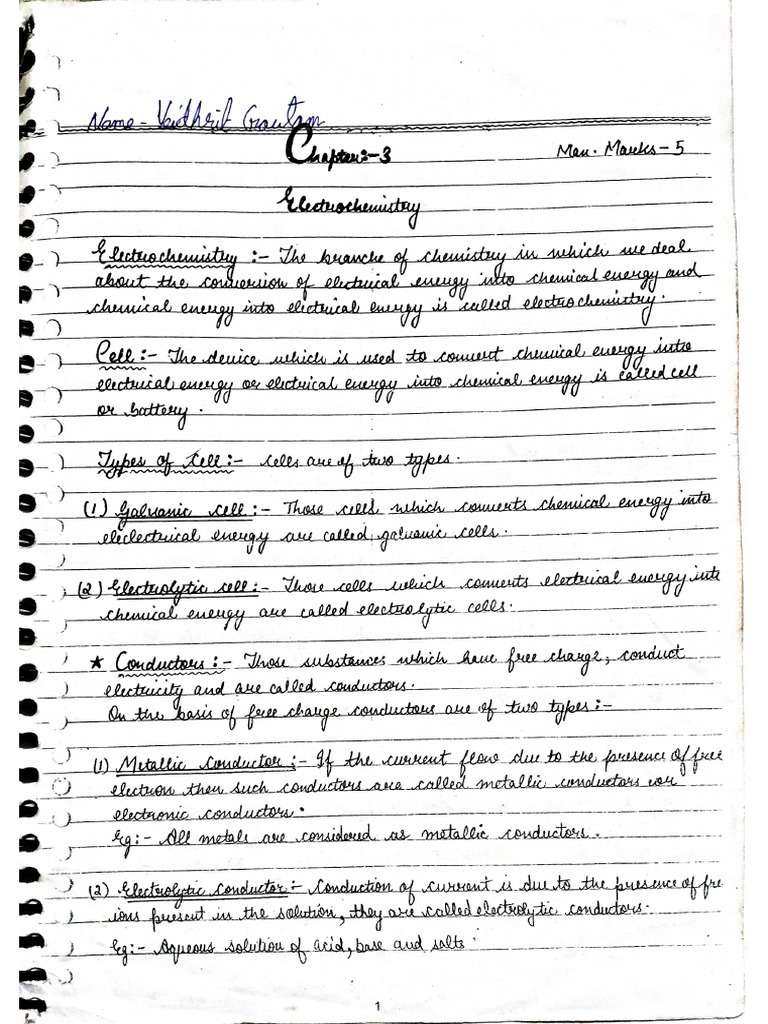 Name - Vaidhrit Gautam
Chapter:-3
Max. Marks - 5
Electrochemistry
Electrochemistry :- The branche of chemistry in which we deal
about the conversion of electrical energy into chemical energy and
chemical energy into electrical energy is called electrochemistry.
Cell :- The device which is used to convert chemical energy into
electrical energy or electrical energy into chemical energy is called cell
or battery.
Types of Cell :- cells are of two types.
(1) Galvanic cell :- Those cells which converts chemical energy into
eleclectrical energy are called galvanic cells.
(2) Electrolytic cell :- Those cells which converts electrical energy into
chemical energy are called electrolytic cells.
★ Conductors :- Those substances which have free charge, conduct
electricity and are called conductors.
On the basis of free charge conductors are of two types :-
(1) Metallic Conductor :- If the current flow due to the presence of free
electron then such conductors are called metallic conductors or
electronic conductors.
Eg :- All metals are considered as metallic conductors.
(2) Electrolytic conductor :- Conduction of current is due to the presence of fre
ions present in the solution, they are called electrolytic conductors.
Eg :- Aqueous solution of acid, base and salts.
1